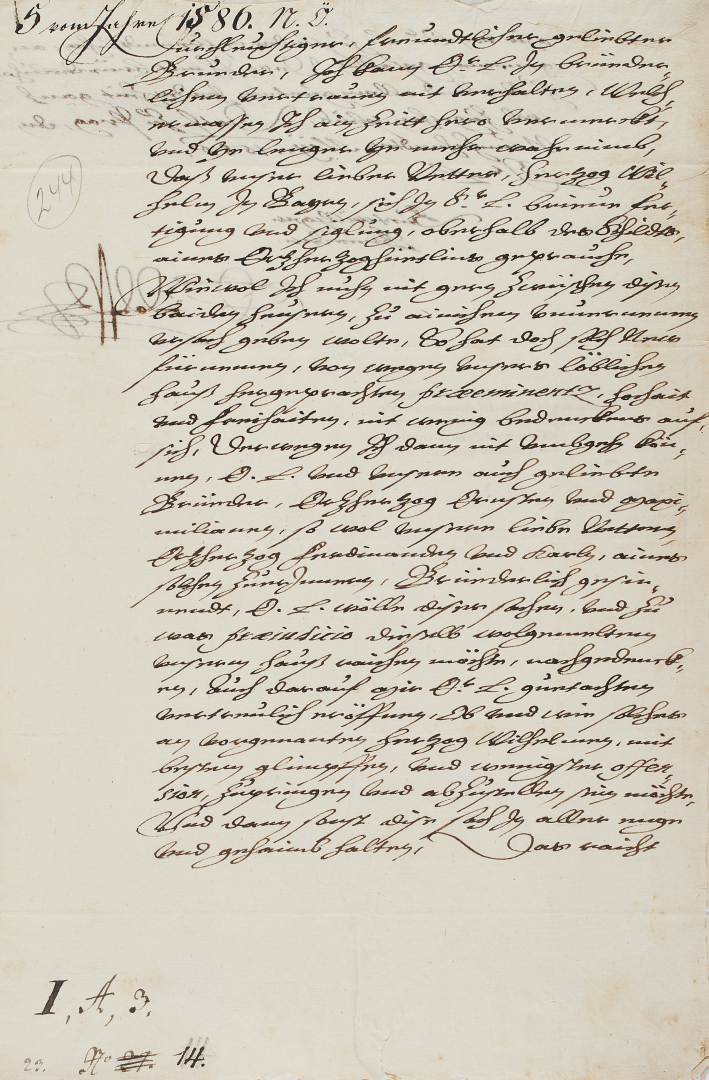 5 vom Jahre 1586. N. Ö.
Durchleuchtiger, freundtlicher geliebter
Brueder, Ich kann Er. L. In brüeder-
lichem vertrauen nit verhalten, Welch-
ermassen Ich ain Zeitt hero vermerckt,
und ye lenger ye mehr wahrnimb,
Daß unser lieber Vetter, Hertzog Wil-
helm In Bayrn, sich In Sr. L. brieve fer-
tigung und siglung, oberhalb des Schildts,
aines Ertzherzoghüetlins geprauche,
Wiewol Ich nuhn nit gern Zwischen disen
baiden heusern, Zu ainichem unvernemen
ursach geben wolte, So hat doch solch News
fürnemen, von wegen unsers löblichen
hauß hergeprachten præeminentz, hochait
und freihaiten, nit wenig bedenckens auf
sich, Derwegen Ich dann nit umbgehn kön-
nen, E. L. und unsere auch geliebte
Brüeder, Ertzherzog Ernsten und Maxi-
milianen, so wol unsere liebe Vettern,
Ertzherzog Ferdinanden und Karln, aines
solchen ZuerInnern, Brüederlich gesin-
nendt, E. L. wölle diser sachen, und zu
was præiuditio dieselb wolgemeltem
unserm hauß raichen möchte, nachgedenck-
en, Auch darauf mir Er. L. guetachten
vertreulich eröffnen, Ob und wie solches
an vorgenanten Hertzog Wilhelmen, mit
bestem glimpffen, und wenigster offen-
sion, Zupringen und abZustellen sein möchte,
Und dann sonst dise sach In aller enge
und gehaimb halten, Das raicht
244
I, A, 3.
23. No 14.